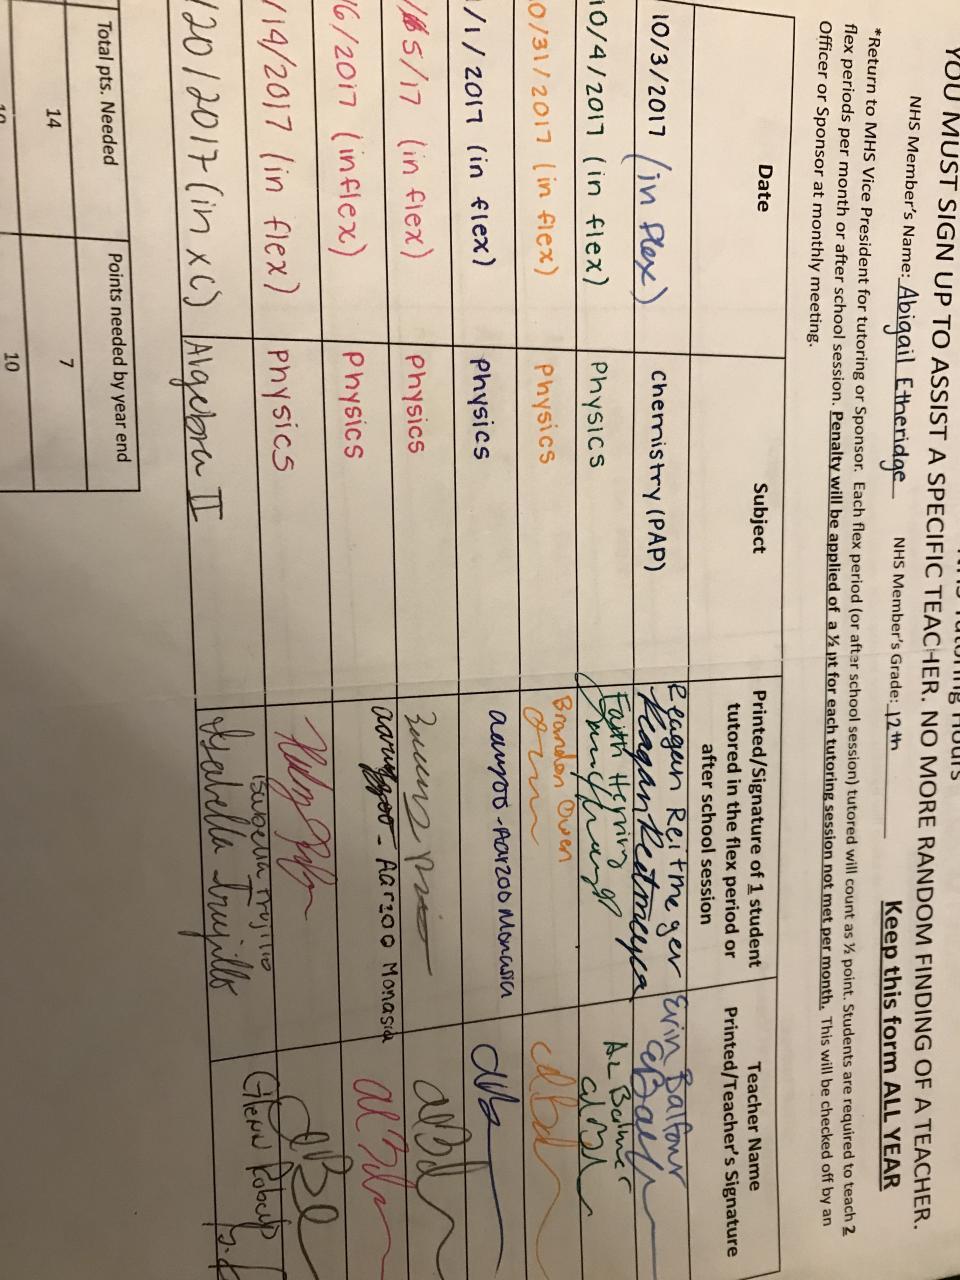 NHS Tutoring Hours
YOU MUST SIGN UP TO ASSIST A SPECIFIC TEACHER. NO MORE RANDOM FINDING OF A TEACHER.
NHS Member's Name: Abigail Etheridge NHS Member's Grade: 12th Keep this form ALL YEAR
*Return to MHS Vice President for tutoring or Sponsor. Each flex period (or after school session) tutored will count as ½ point. Students are required to teach 2
flex periods per month or after school session. Penalty will be applied of a ½ pt for each tutoring session not met per month. This will be checked off by an
Officer or Sponsor at monthly meeting.
Date Subject Printed/Signature of 1 student tutored in the flex period or after school session Teacher Name Printed/Teacher's Signature
10/3/2017 (in flex) chemistry (PAP) Reagan Reitmeyer Reagan Reitmeyer Erin Balfour
10/4/2017 (in flex) Physics Faith Herring
0/31/2017 (in flex) Physics Brandon Owen
1/1/2017 (in flex) Physics aarzoo - Aarzoo Monasia
5/17 (in flex) Physics
16/2017 (in flex) Physics - Aarzoo Monasia
/14/2017 (in flex) Physics
/20/2017 (in xc) Algebra II Isabella Trujillo Isabella Trujillo Glenn
Total pts. Needed Points needed by year end
14 7
10